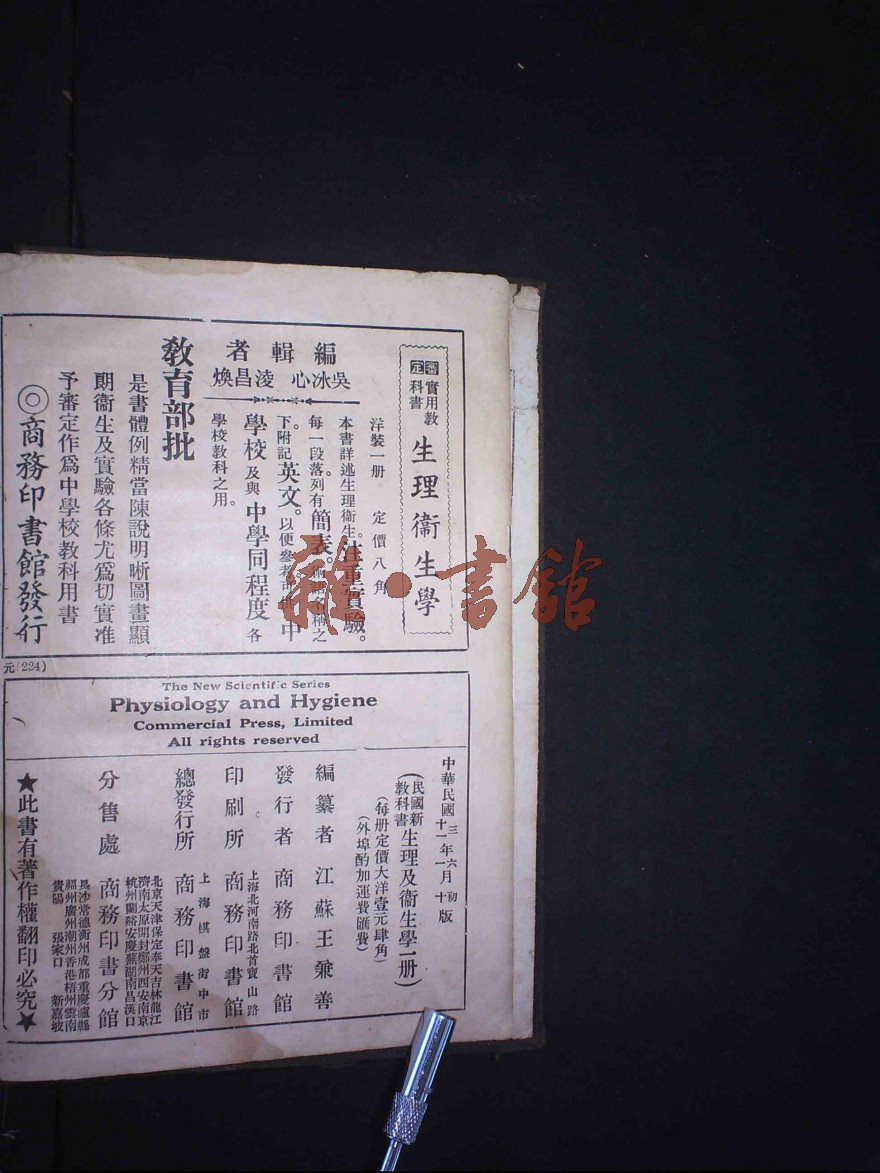 審定
實用教科書
生理衞生學
洋裝一册 定價八角
本書詳述生理衞生。注重實驗。
每一段落列有簡表。名稱之
下。附記英文。以便參考可供中
學校及與中學同程度各
學校教科之用。
編輯者
吳冰心 淩昌煥
教育部批
是書體例精當陳說明晰圖畫顯
朗衞生及實驗各條尤爲切實准
予審定作爲中學校教科用書
◎商務印書館發行
元(224)
The New Scientific Series
Physiology and Hygiene
Commercial Press, Limited
All rights reserved
中華民國三年六月初版
十一年一月十版
(民國新教科書生理及衞生學一册)
(每册定價大洋壹元肆角)
(外埠酌加運費匯費)
編纂者 江蘇王兼善
發行者 商務印書館
上海北河南路北首寶山路
印刷所 商務印書館
上海棋盤街中市
總發行所 商務印書館
北京天津保定奉天吉林龍江
濟南太原開封鄭州西安南京
杭州蘭谿安慶蕪湖南昌漢口
分售處 商務印書分館
長沙常德衡州成都重慶瀘縣
福州廣州潮州香港梧州雲南
貴陽 張家口 新嘉坡
★此書有著作權翻印必究★
雜·書館